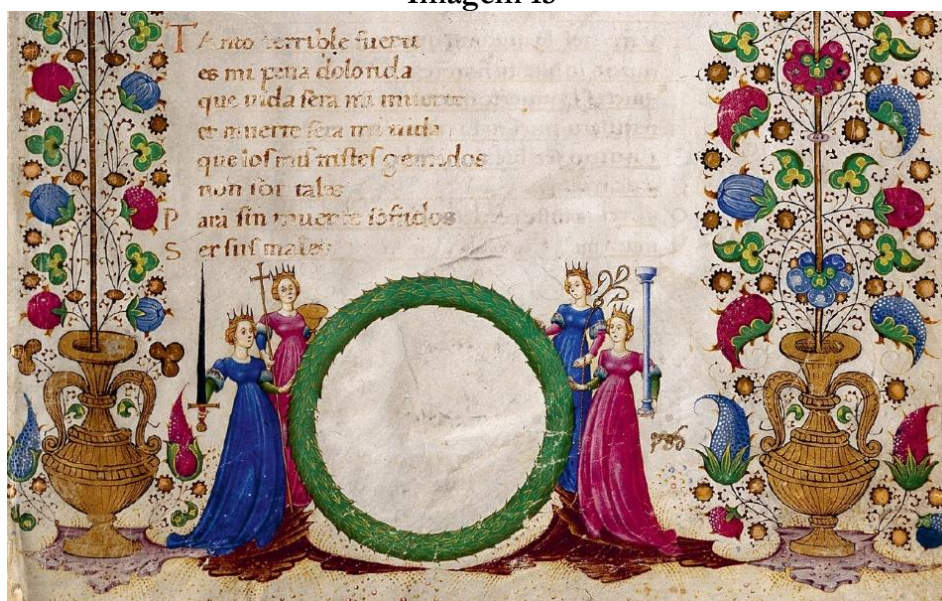 Imagem
TAnto terrible fuerte
es mi pena dolorida
que uida sera mi muerte
muerte sera mi uida
que los mis tristes gemidos
non son tales
Para sin muerte sofridos
Ser sus males